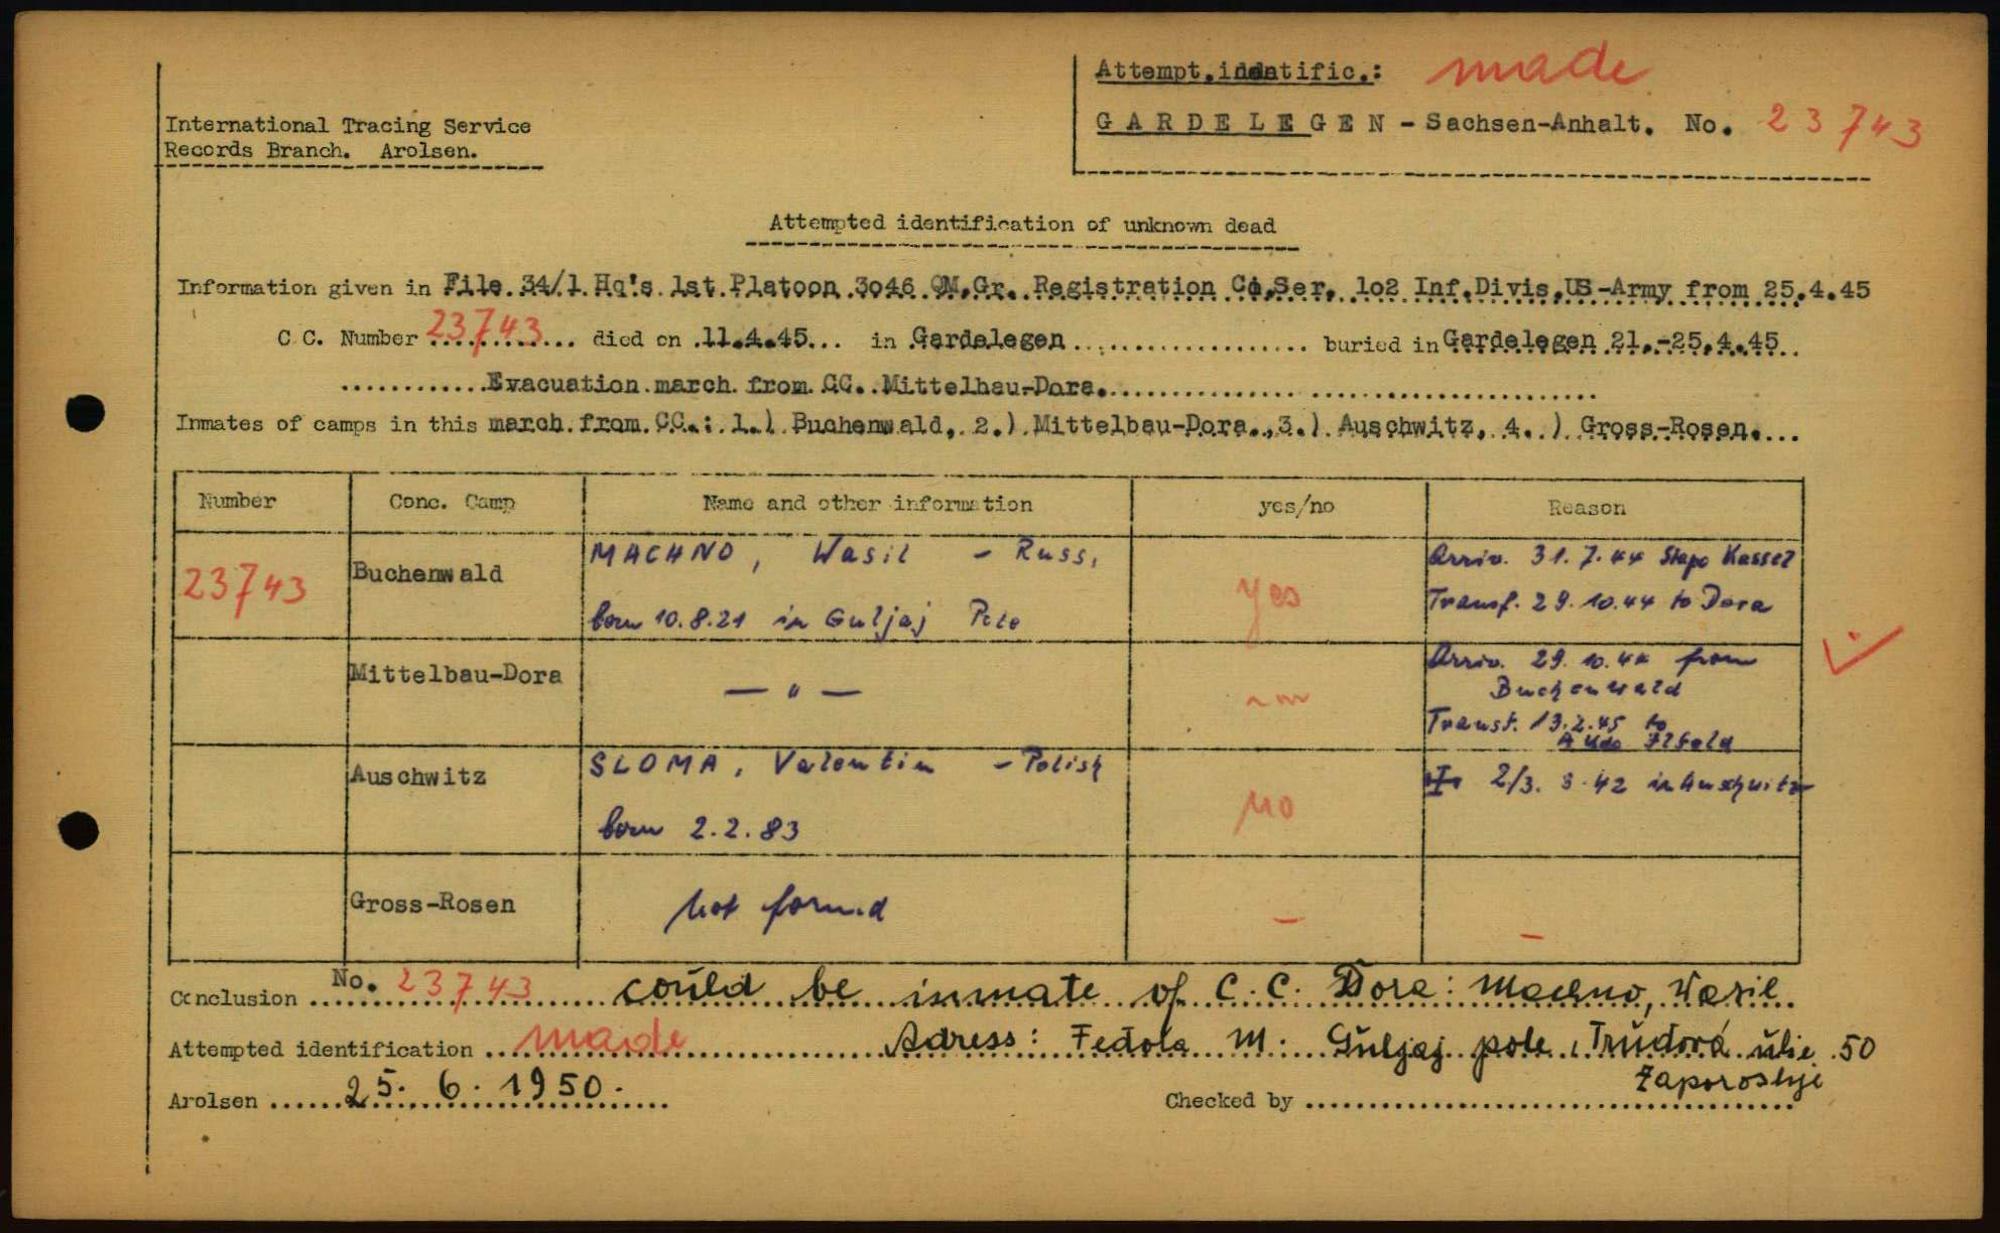 Attempt.identific.: made
GARDELEGEN - Sachsen-Anhalt. No. 23743
International Tracing Service
Records Branch. Arolsen.
Attempted identification of unknown dead
Information given in File 34/1 Hq's 1st Platoon 3046 QM.Gr. Registration Co.Ser. 102 Inf.Divis.US-Army from 25.4.45
C.C. Number 23743 died on 11.4.45... in Gardelegen buried in Gardelegen 21.-25.4.45
Evacuation march from CC. Mittelbau-Dora.
Inmates of camps in this march from CC.: 1.) Buchenwald, 2.) Mittelbau-Dora., 3.) Auschwitz, 4.) Gross-Rosen.
Number Conc. Camp Name and other information yes/no Reason
23743 Buchenwald MACHNO, Wasil - Russ. yes Arriv. 31.7.44 Stapo Kassel
born 10.8.21 in Guljaj Pole Transf. 29.10.44 to Dora
Mittelbau-Dora — " — Arriv. 29.10.44 from
Buchenwald
Transf. 13.2.45 to
Ilfeld
Auschwitz SLOMA, Valentin - Polish no 2/3. 8.42 in Auschwitz
born 2.2.83
Gross-Rosen not found — —
Conclusion No. 23743 could be inmate of C.C. Dora: Machno, Wasil.
Attempted identification made Adress: Fedola M. Guljaj pole, Trudová ulie 50
Zaporoshje
Arolsen 25. 6. 1950. Checked by